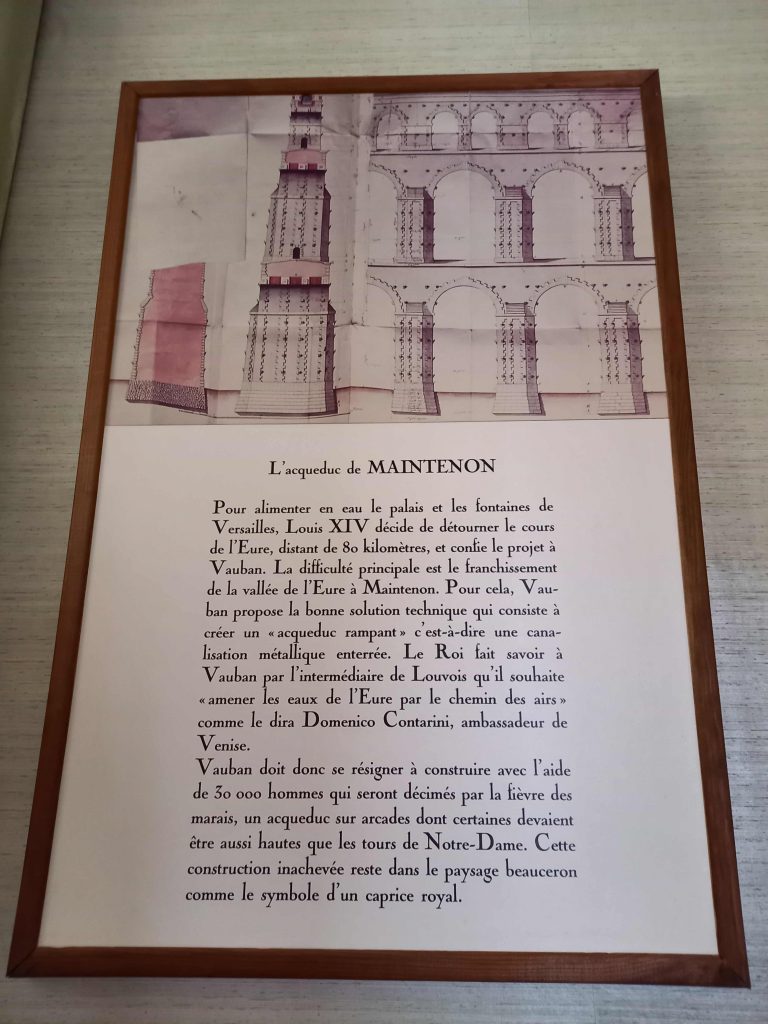 L'acqueduc de MAINTENON
Pour alimenter en eau le palais et les fontaines de
Versailles, Louis XIV décide de détourner le cours
de l'Eure, distant de 80 kilomètres, et confie le projet à
Vauban. La difficulté principale est le franchissement
de la vallée de l'Eure à Maintenon. Pour cela, Vau-
ban propose la bonne solution technique qui consiste à
créer un « acqueduc rampant » c'est-à-dire une cana-
lisation métallique enterrée. Le Roi fait savoir à
Vauban par l'intermédiaire de Louvois qu'il souhaite
« amener les eaux de l'Eure par le chemin des airs »
comme le dira Domenico Contarini, ambassadeur de
Venise.
Vauban doit donc se résigner à construire avec l'aide
de 30 000 hommes qui seront décimés par la fièvre des
marais, un acqueduc sur arcades dont certaines devaient
être aussi hautes que les tours de Notre-Dame. Cette
construction inachevée reste dans le paysage beauceron
comme le symbole d'un caprice royal.